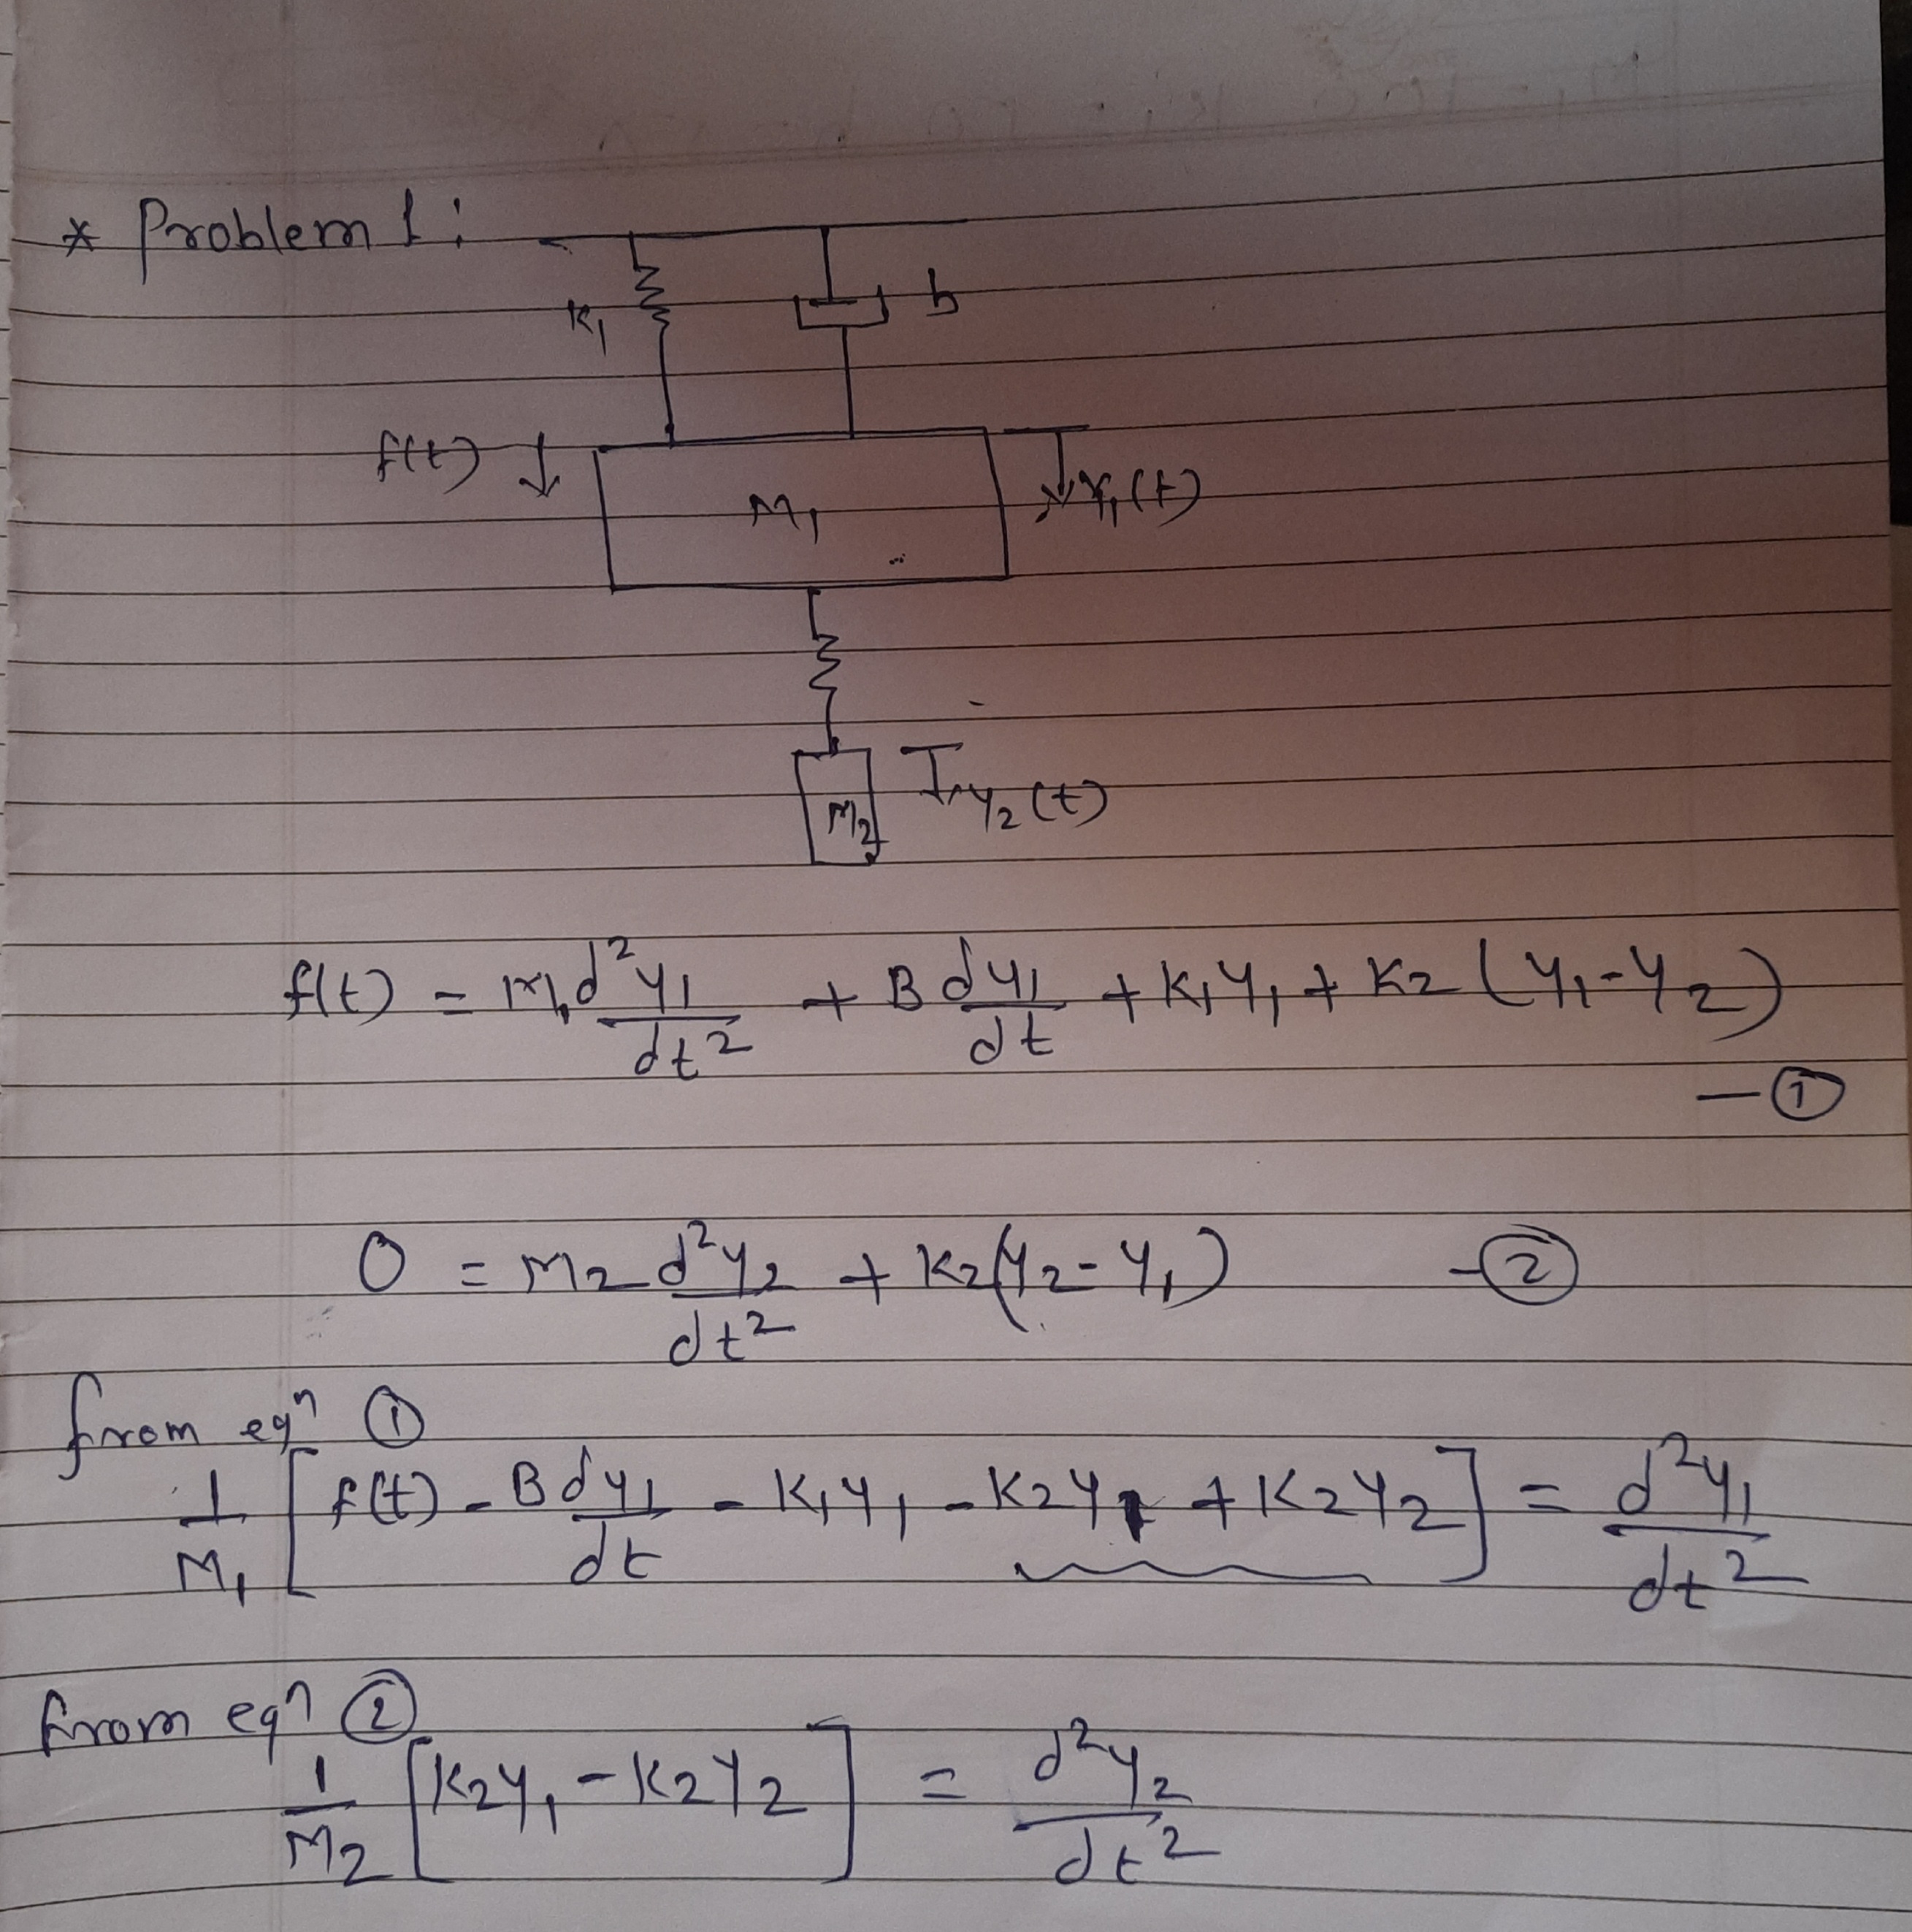 * Problem 1:
K1
b
f(t)
M1
y1(t)
M2
y2(t)
f(t) = M1 d²y1/dt² + B dy1/dt + K1y1 + K2 (y1-y2)
— ①
0 = M2 d²y2/dt² + K2(y2-y1) - ②
from eqn ①
1/M1 [f(t) - B dy1/dt - K1y1 - K2y1 + K2y2] = d²y1/dt²
from eqn ②
1/M2 [K2y1 - K2y2] = d²y2/dt²